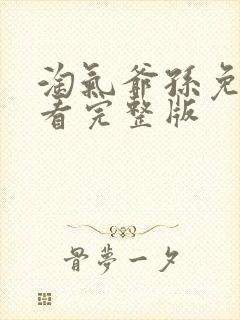 淘氣爺孫免
看完整版
骨夢一夕